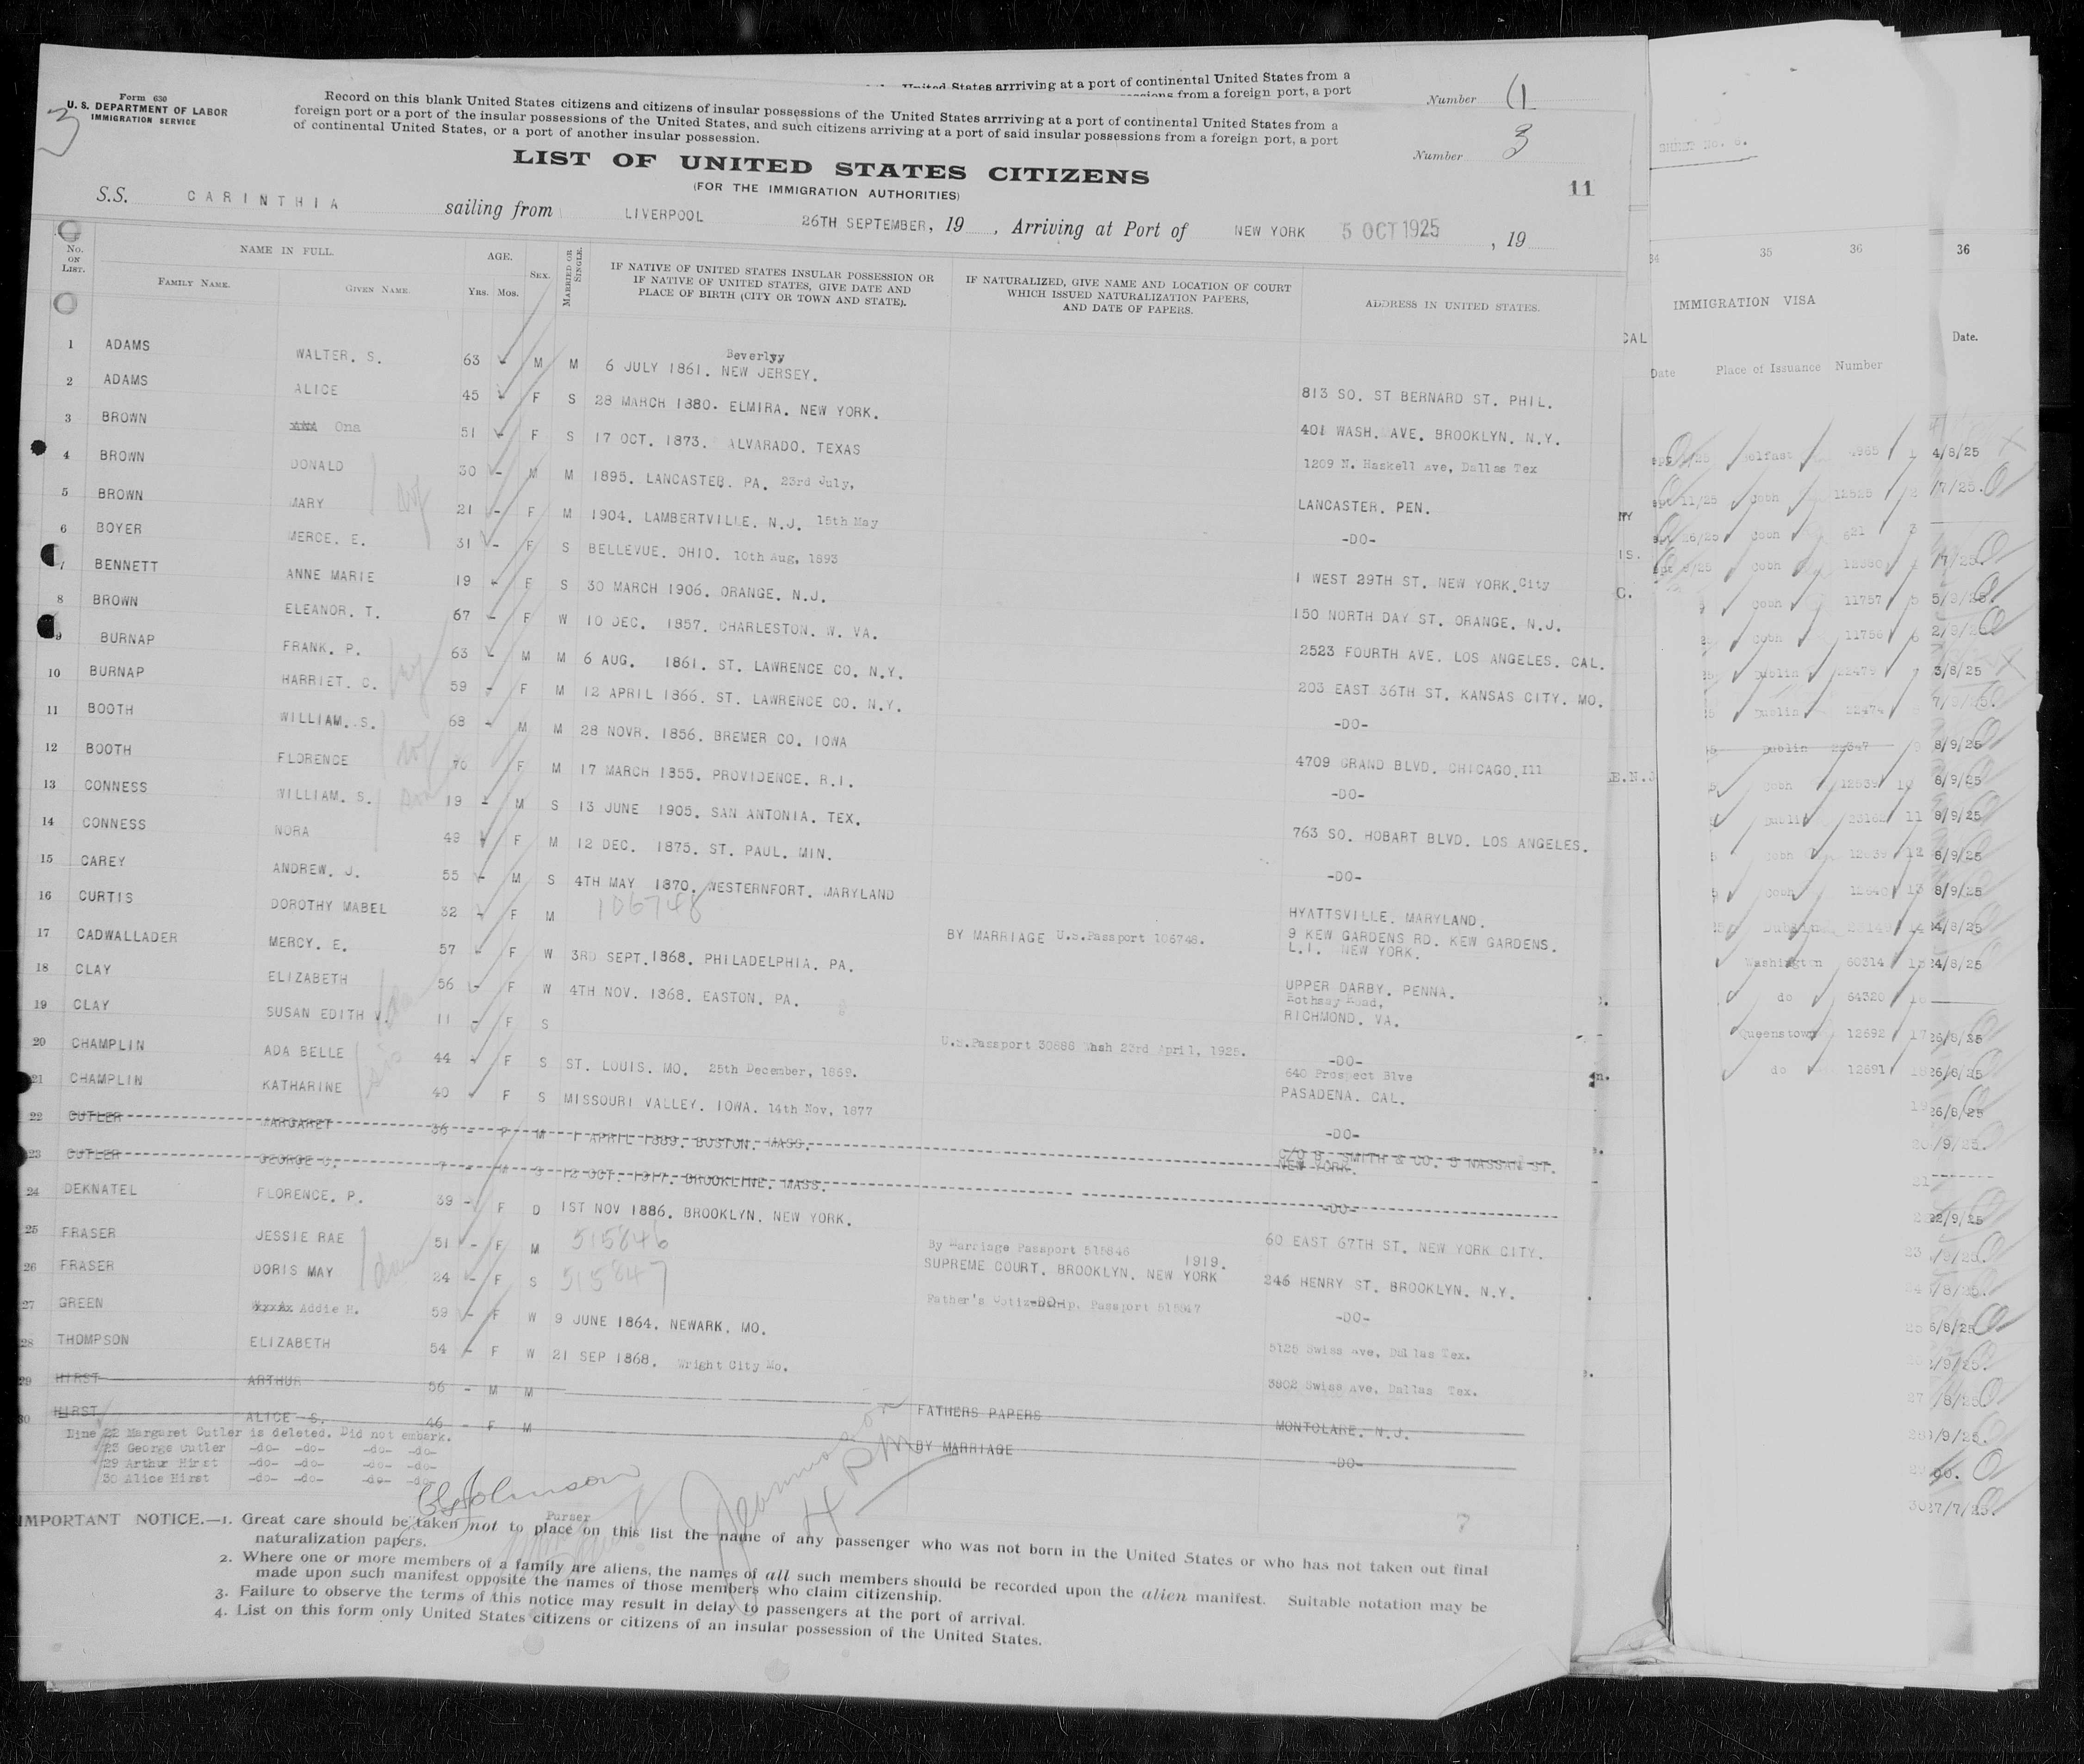 United States arriving at a port of continental United States from a
from a foreign port, a port
Number
Form 630
U. S. DEPARTMENT OF LABOR
IMMIGRATION SERVICE
3
Record on this blank United States citizens and citizens of insular possessions of the United States arrriving at a port of continental United States from a
foreign port or a port of the insular possessions of the United States, and such citizens arriving at a port of said insular possessions from a foreign port, a port
of continental United States, or a port of another insular possession.
Number 3
LIST OF UNITED STATES CITIZENS
(FOR THE IMMIGRATION AUTHORITIES)
11
S.S. CARINTHIA sailing from LIVERPOOL 26TH SEPTEMBER, 19 , Arriving at Port of NEW YORK 5 OCT 1925 , 19
No. ON LIST. NAME IN FULL. FAMILY NAME. GIVEN NAME. AGE. Yrs. Mos. SEX. MARRIED OR SINGLE. IF NATIVE OF UNITED STATES INSULAR POSSESSION OR IF NATIVE OF UNITED STATES, GIVE DATE AND PLACE OF BIRTH (CITY OR TOWN AND STATE). IF NATURALIZED, GIVE NAME AND LOCATION OF COURT WHICH ISSUED NATURALIZATION PAPERS, AND DATE OF PAPERS. ADDRESS IN UNITED STATES.
1 ADAMS WALTER. S. 63 - M M 6 JULY 1861. Beverlyy NEW JERSEY. 813 SO. ST BERNARD ST. PHIL.
2 ADAMS ALICE 45 - F S 28 MARCH 1880. ELMIRA. NEW YORK. 401 WASH. AVE. BROOKLYN. N.Y.
3 BROWN Ona 51 - F S 17 OCT. 1873. ALVARADO. TEXAS 1209 N. Haskell Ave, Dallas Tex
4 BROWN DONALD 30 - M M 1895. LANCASTER. PA. 23rd July, LANCASTER. PEN.
5 BROWN MARY 21 - F M 1904. LAMBERTVILLE. N.J. 15th May -DO-
6 BOYER MERCE. E. 31 - F S BELLEVUE. OHIO. 10th Aug, 1893 1 WEST 29TH ST. NEW YORK.City
7 BENNETT ANNE MARIE 19 - F S 30 MARCH 1906. ORANGE. N.J. 150 NORTH DAY ST. ORANGE. N.J.
8 BROWN ELEANOR. T. 67 - F W 10 DEC. 1857. CHARLESTON. W. VA. 2523 FOURTH AVE. LOS ANGELES. CAL.
9 BURNAP FRANK. P. 63 - M M 6 AUG. 1861. ST. LAWRENCE CO. N.Y. 203 EAST 36TH ST. KANSAS CITY. MO.
10 BURNAP HARRIET. C. 59 - F M 12 APRIL 1866. ST. LAWRENCE CO. N.Y. -DO-
11 BOOTH WILLIAM. S. 68 - M M 28 NOVR. 1856. BREMER CO. IOWA 4709 GRAND BLVD. CHICAGO.Ill
12 BOOTH FLORENCE 70 F M 17 MARCH 1855. PROVIDENCE. R.I. -DO-
13 CONNESS WILLIAM. S. 19 - M S 13 JUNE 1905. SAN ANTONIA. TEX. 763 SO. HOBART BLVD. LOS ANGELES.
14 CONNESS NORA 49 - F M 12 DEC. 1875. ST. PAUL. MIN. -DO-
15 CAREY ANDREW. J. 55 - M S 4TH MAY 1870. WESTERNFORT. MARYLAND HYATTSVILLE. MARYLAND.
16 CURTIS DOROTHY MABEL 32 - F M 106748 BY MARRIAGE U.S.Passport 106748. 9 KEW GARDENS RD. KEW GARDENS. L.I. NEW YORK.
17 CADWALLADER MERCY. E. 57 - F W 3RD SEPT.1868. PHILADELPHIA. PA. UPPER DARBY. PENNA.
18 CLAY ELIZABETH 56 - F W 4TH NOV. 1868. EASTON. PA. Rothsay Road, RICHMOND. VA.
19 CLAY SUSAN EDITH V. 11 - F S U.S.Passport 30888 Wash 23rd April, 1925. -DO-
20 CHAMPLIN ADA BELLE 44 - F S ST. LOUIS. MO. 25th December, 1869. 640 Prospect Blve PASADENA. CAL.
21 CHAMPLIN KATHARINE 40 F S MISSOURI VALLEY. IOWA. 14th Nov, 1877 -DO-
22 CUTLER MARGARET 36 - F M 1 APRIL 1889. BOSTON. MASS. C/O B. SMITH & CO. 5 NASSAN ST. NEW YORK.
23 CUTLER GEORGE C. 7 - M S 12 OCT. 1917. BROOKLINE. MASS. -DO-
24 DEKNATEL FLORENCE. P. 39 - F D 1ST NOV 1886. BROOKLYN. NEW YORK. 60 EAST 67TH ST. NEW YORK CITY.
25 FRASER JESSIE RAE 51 - F M 515846 By Marriage Passport 515846 1919. SUPREME COURT. BROOKLYN. NEW YORK 246 HENRY ST. BROOKLYN. N.Y.
26 FRASER DORIS MAY 24 - F S 515847 -DO- Father's Citizenship. Passport 515847 -DO-
27 GREEN Addie H. 59 - F W 9 JUNE 1864. NEWARK. MO. 5125 Swiss Ave, Dallas Tex.
28 THOMPSON ELIZABETH 54 - F W 21 SEP 1868. Wright City Mo. 3902 Swiss Ave, Dallas Tex.
29 HIRST ARTHUR 56 - M M FATHERS PAPERS MONTCLARE. N.J.
30 HIRST ALICE S. 46 - F M BY MARRIAGE -DO-
Line 22 Margaret Cutler is deleted. Did not embark.
23 George Cutler -do- -do- -do- -do-
29 Arthur Hirst -do- -do- -do- -do-
30 Alice Hirst -do- -do- -do- -do-
Johnson
Purser
IMPORTANT NOTICE.—1. Great care should be taken not to place on this list the name of any passenger who was not born in the United States or who has not taken out final
naturalization papers.
2. Where one or more members of a family are aliens, the names of all such members should be recorded upon the alien manifest. Suitable notation may be
made upon such manifest opposite the names of those members who claim citizenship.
3. Failure to observe the terms of this notice may result in delay to passengers at the port of arrival.
4. List on this form only United States citizens or citizens of an insular possession of the United States.
SHEET No. 6.
34 35 36 36
IMMIGRATION VISA
Date Place of Issuance Number Date.
CAL
Belfast 4/8/25
11/25 Cobh 12525 2 /7/25.
Cobh 621 3
Cobh 7/25.
Cobh 11757 5
Cobh 11756 6
Dublin 22479 7 3/8/25
Dublin 22474
Dublin 22347 8/9/25
Cobh 12539 10 8/9/25
Dublin 23162 11 8/9/25
Cobh 12 8/9/25
Cobh 13 8/9/25
Dublin 14
Washington 60314 15 24/8/25
do 64320 16
Queenstown 12692 17 26/8/25
do 12691 18 26/8/25
19 26/8/25
20 /9/25.
21
22/9/25
23 /9/25.
6/8/25
27 /8/25
/9/25.
30 27/7/25.